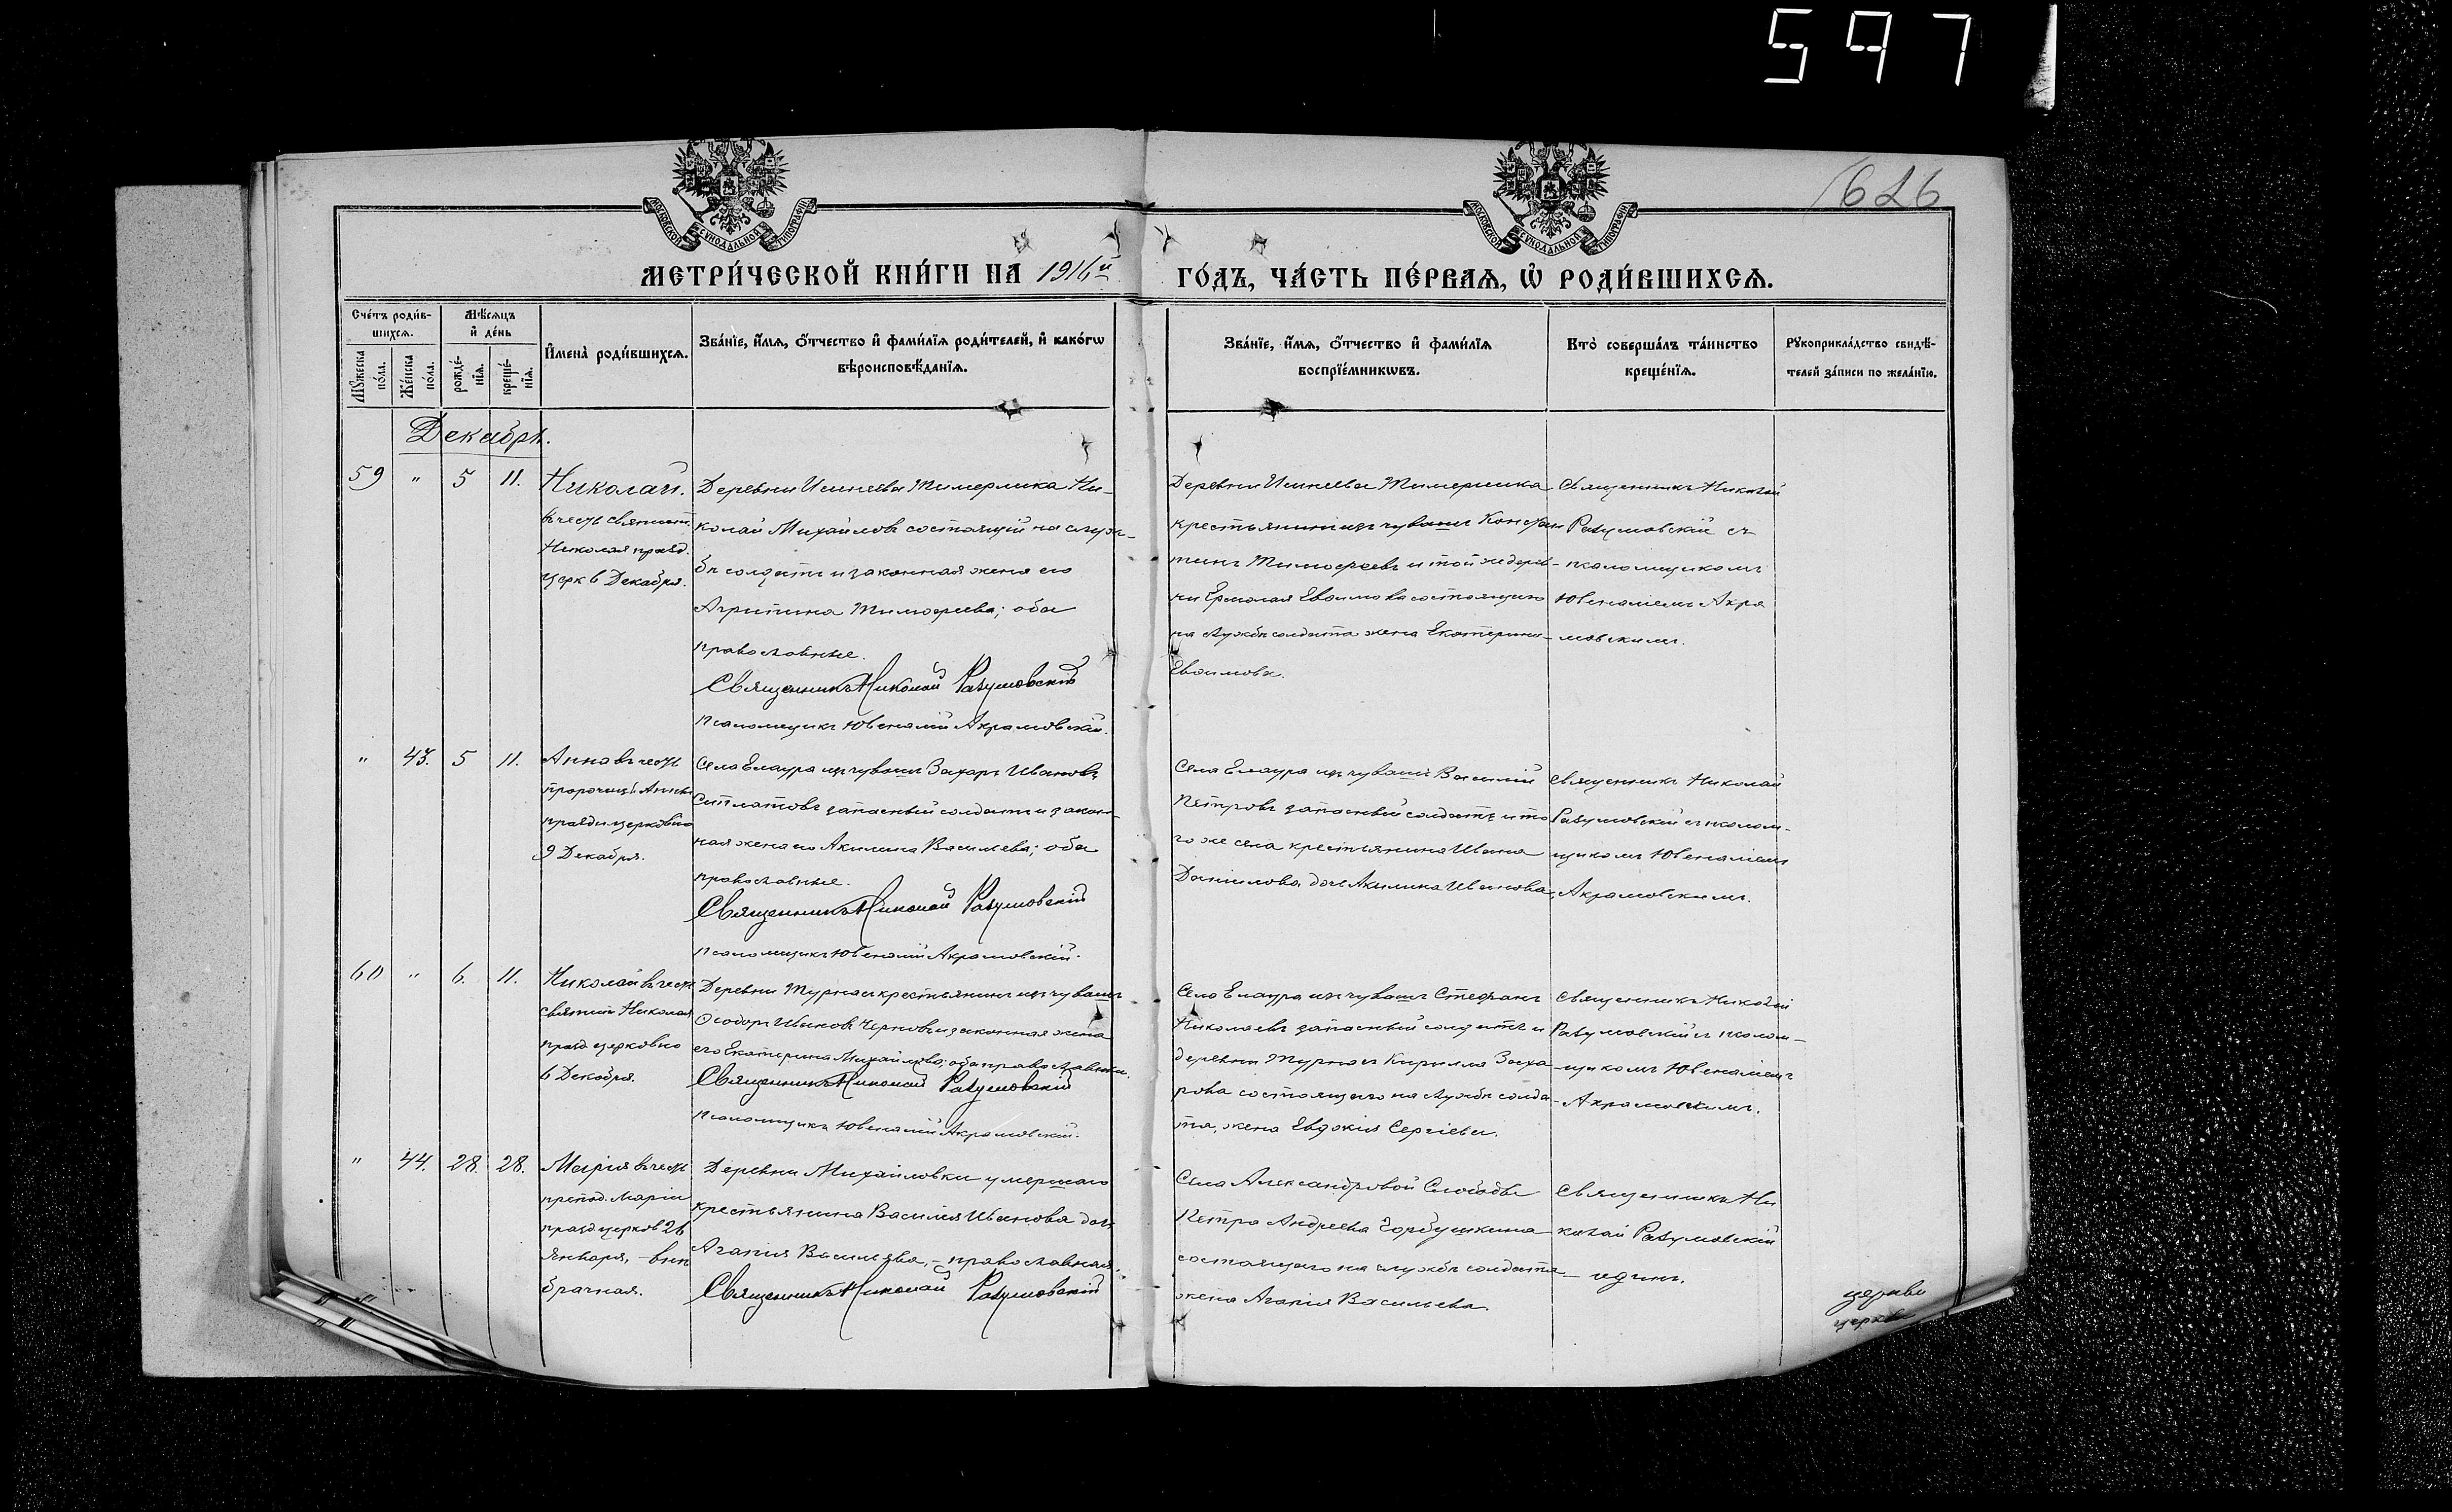 597
626
МОСКОВСКОЙ СѴНОДАЛЬНОЙ ТИПОГРАФІИ
МОСКОВСКОЙ СѴНОДАЛЬНОЙ ТИПОГРАФІИ
МЕТРИ́ЧЕСКОЙ КНИ́ГИ НА 1916й ГО́ДЪ, ЧА́СТЬ ПЕ́РВАѦ, Ѡ҆ РОДИ́ВШИХСѦ.
Сче́тъ роди́в-
шихсѧ.
Мꙋ́жеска по́ла.
Же́нска по́ла.
Мѣ́сѧцъ
и҆ де́нь
рожде́-
нїѧ.
креще́-
нїѧ.
И҆мена̀ роди́вшихсѧ.
Зва́нїе, и҆́мѧ, ѻ҆́тчество и҆ фами́лїѧ роди́телей, и҆ како́гѡ
вѣроисповѣ́данїѧ.
Зва́нїе, и҆́мѧ, ѻ҆́тчество и҆ фами́лїѧ
воспрїе́мникѡвъ.
Кто̀ соверша́лъ та́инство
креще́нїѧ.
Рꙋкоприкла́дство свидѣ́-
телей за́писи по жела́нїю.
Декабрь.
59 " 5 11.
Николай.
въ честь святит.
Николая празд.
церк 6 Декабря.
Деревни Ишмеева Тимерлика Ни-
колай Михайловъ состоящій на служ-
бѣ солдатъ и законная жена его
Агрипина Тимофеева; оба
православные.
Священникъ Николай Разумовскій
Псаломщикъ Ювеналій Акрамовскій.
Деревни Ишмеева Тимерлика
крестьянинъ изъ чувашъ Констан
тинъ Тимофеевъ и той же дерев-
ни Ермолая Евдимова состоящаго
на службѣ солдата жена Екатерина
Евдимова.
Священникъ Николай
Разумовскій съ
псаломщикомъ
Ювеналіемъ Акра
мовскимъ.
" 43. 5 11.
Анна въ честь
пророчицы Анны
праздн церковью
9 Декабря.
Села Елаура изъ чувашъ Захаръ Ивановъ
запасный солдатъ и закон-
ная жена его Акилина Васильева; оба
православные.
Священникъ Николай Разумовскій
Псаломщикъ Ювеналій Акрамовскій.
Села Елаура изъ чувашъ Василій
Петровъ запасный солдатъ и то
го же села крестьянина Ивана
Данилова дочь Акилина Иванова.
Священникъ Николай
Разумовскій съ псалом-
щикомъ Ювеналіемъ
Акрамовскимъ.
60 " 6. 11.
Николай въ честь
святит Николая
празд церковью
6 Декабря.
Деревни Турнасъ крестьянинъ изъ чувашъ
Ѳеодоръ Ивановъ Черновъ и законная жена
его Екатерина Михайлова; оба православные.
Священникъ Николай Разумовскій
Псаломщикъ Ювеналій Акрамовскій.
Села Елаура изъ чувашъ Стефанъ
Николаевъ запасный солдатъ и
деревни Турнасъ Кирилла Заха
рова состоящаго на службѣ солда-
та, жена Евдокія Сергіева.
Священникъ Николай
Разумовскій съ псалом-
щикомъ Ювеналіемъ
Акрамовскимъ.
" 44. 28. 28.
Марія въ честь
препод. Маріи
празд церков 26
Января, - внѣ
брачная.
Деревни Михайловки умершаго
крестьянина Василія Иванова дочь
Агапія Васильева, - православная.
Священникъ Николай Разумовскій
Села Александровой Слободы
Петра Андреева Горбушкина
состоящаго на службѣ солдата
жена Агапія Васильева.
Священникъ Ни
колай Разумовскій
- единъ.